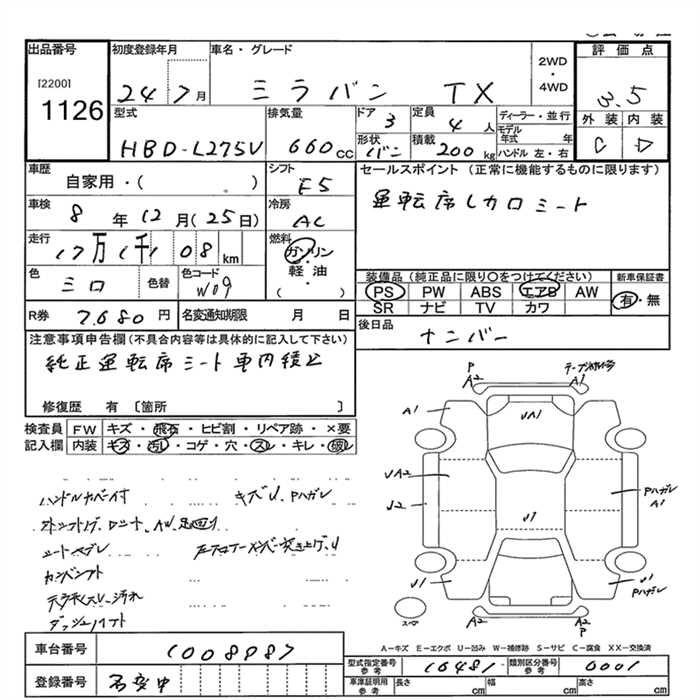 出品番号 初度登録年月 車名・グレード 2WD・4WD 評価点
[2200]
1126 24 7月 ミラバン TX 3.5
型式 排気量 ドア 3 定員 4人 ディーラー・並行 外装 内装
HBD-L275V 660cc 形状 バン 積載 200kg モデル年式 年 ハンドル 左・右 C D
車歴 シフト セールスポイント (正常に機能するものに限ります)
自家用・( ) F5 運転席レカロシート
車検 8年 12月(25日) 冷房 AC
走行 17万 1千 108 km 燃料 ガソリン・軽油・( )
色 シロ 色替 色コード W09 装備品(純正品に限り〇をつけてください) 新車保証書
PS PW ABS エアB AW 有・無
SR ナビ TV カワ
R券 7.680円 名変通知期限 月 日 後日品 ナンバー
注意事項申告欄(不具合内容等は具体的に記入して下さい)
純正運転席シート車内積込
修復歴 有 〔箇所 〕
検査員 FW キズ・飛石・ヒビ割・リペア跡・×要
記入欄 内装 キズ・汚れ・コゲ・穴・スレ・キレ・破レ
ハンドルカバー付 キズU、Pハガレ
シートヘタレ
天井スレ・汚れ
P A2 A1
A1 UA1
UA2 Pハガレ A1
U2 U1
U1 U1 Pハガレ
スペア A2 A2 P
A-キズ E-エクボ U-凹み W-補修跡 S-サビ C-腐食 XX-交換済
車台番号 1008987 型式指定番号 参考 16481 類別区分番号 参考 0001
登録番号 名変中 車庫証明用 参考 長さ cm 幅 cm 高さ cm